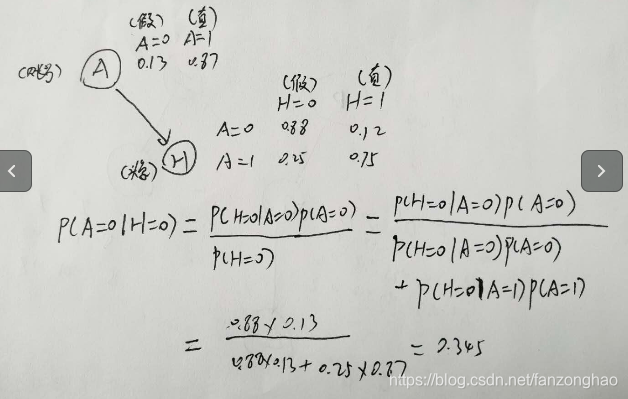 (假) (真)
A=0 A=1
0.13 0.87
A
(假) (真)
H=0 H=1
A=0 0.88 0.12
A=1 0.25 0.75
(头像) H
P(A=0|H=0) = P(H=0|A=0)P(A=0) / P(H=0) = P(H=0|A=0)P(A=0) / P(H=0|A=0)P(A=0) + P(H=0|A=1)P(A=1)
= 0.88×0.13 / 0.88×0.13+0.25×0.87 = 0.345
https://blog.csdn.net/fanzonghao